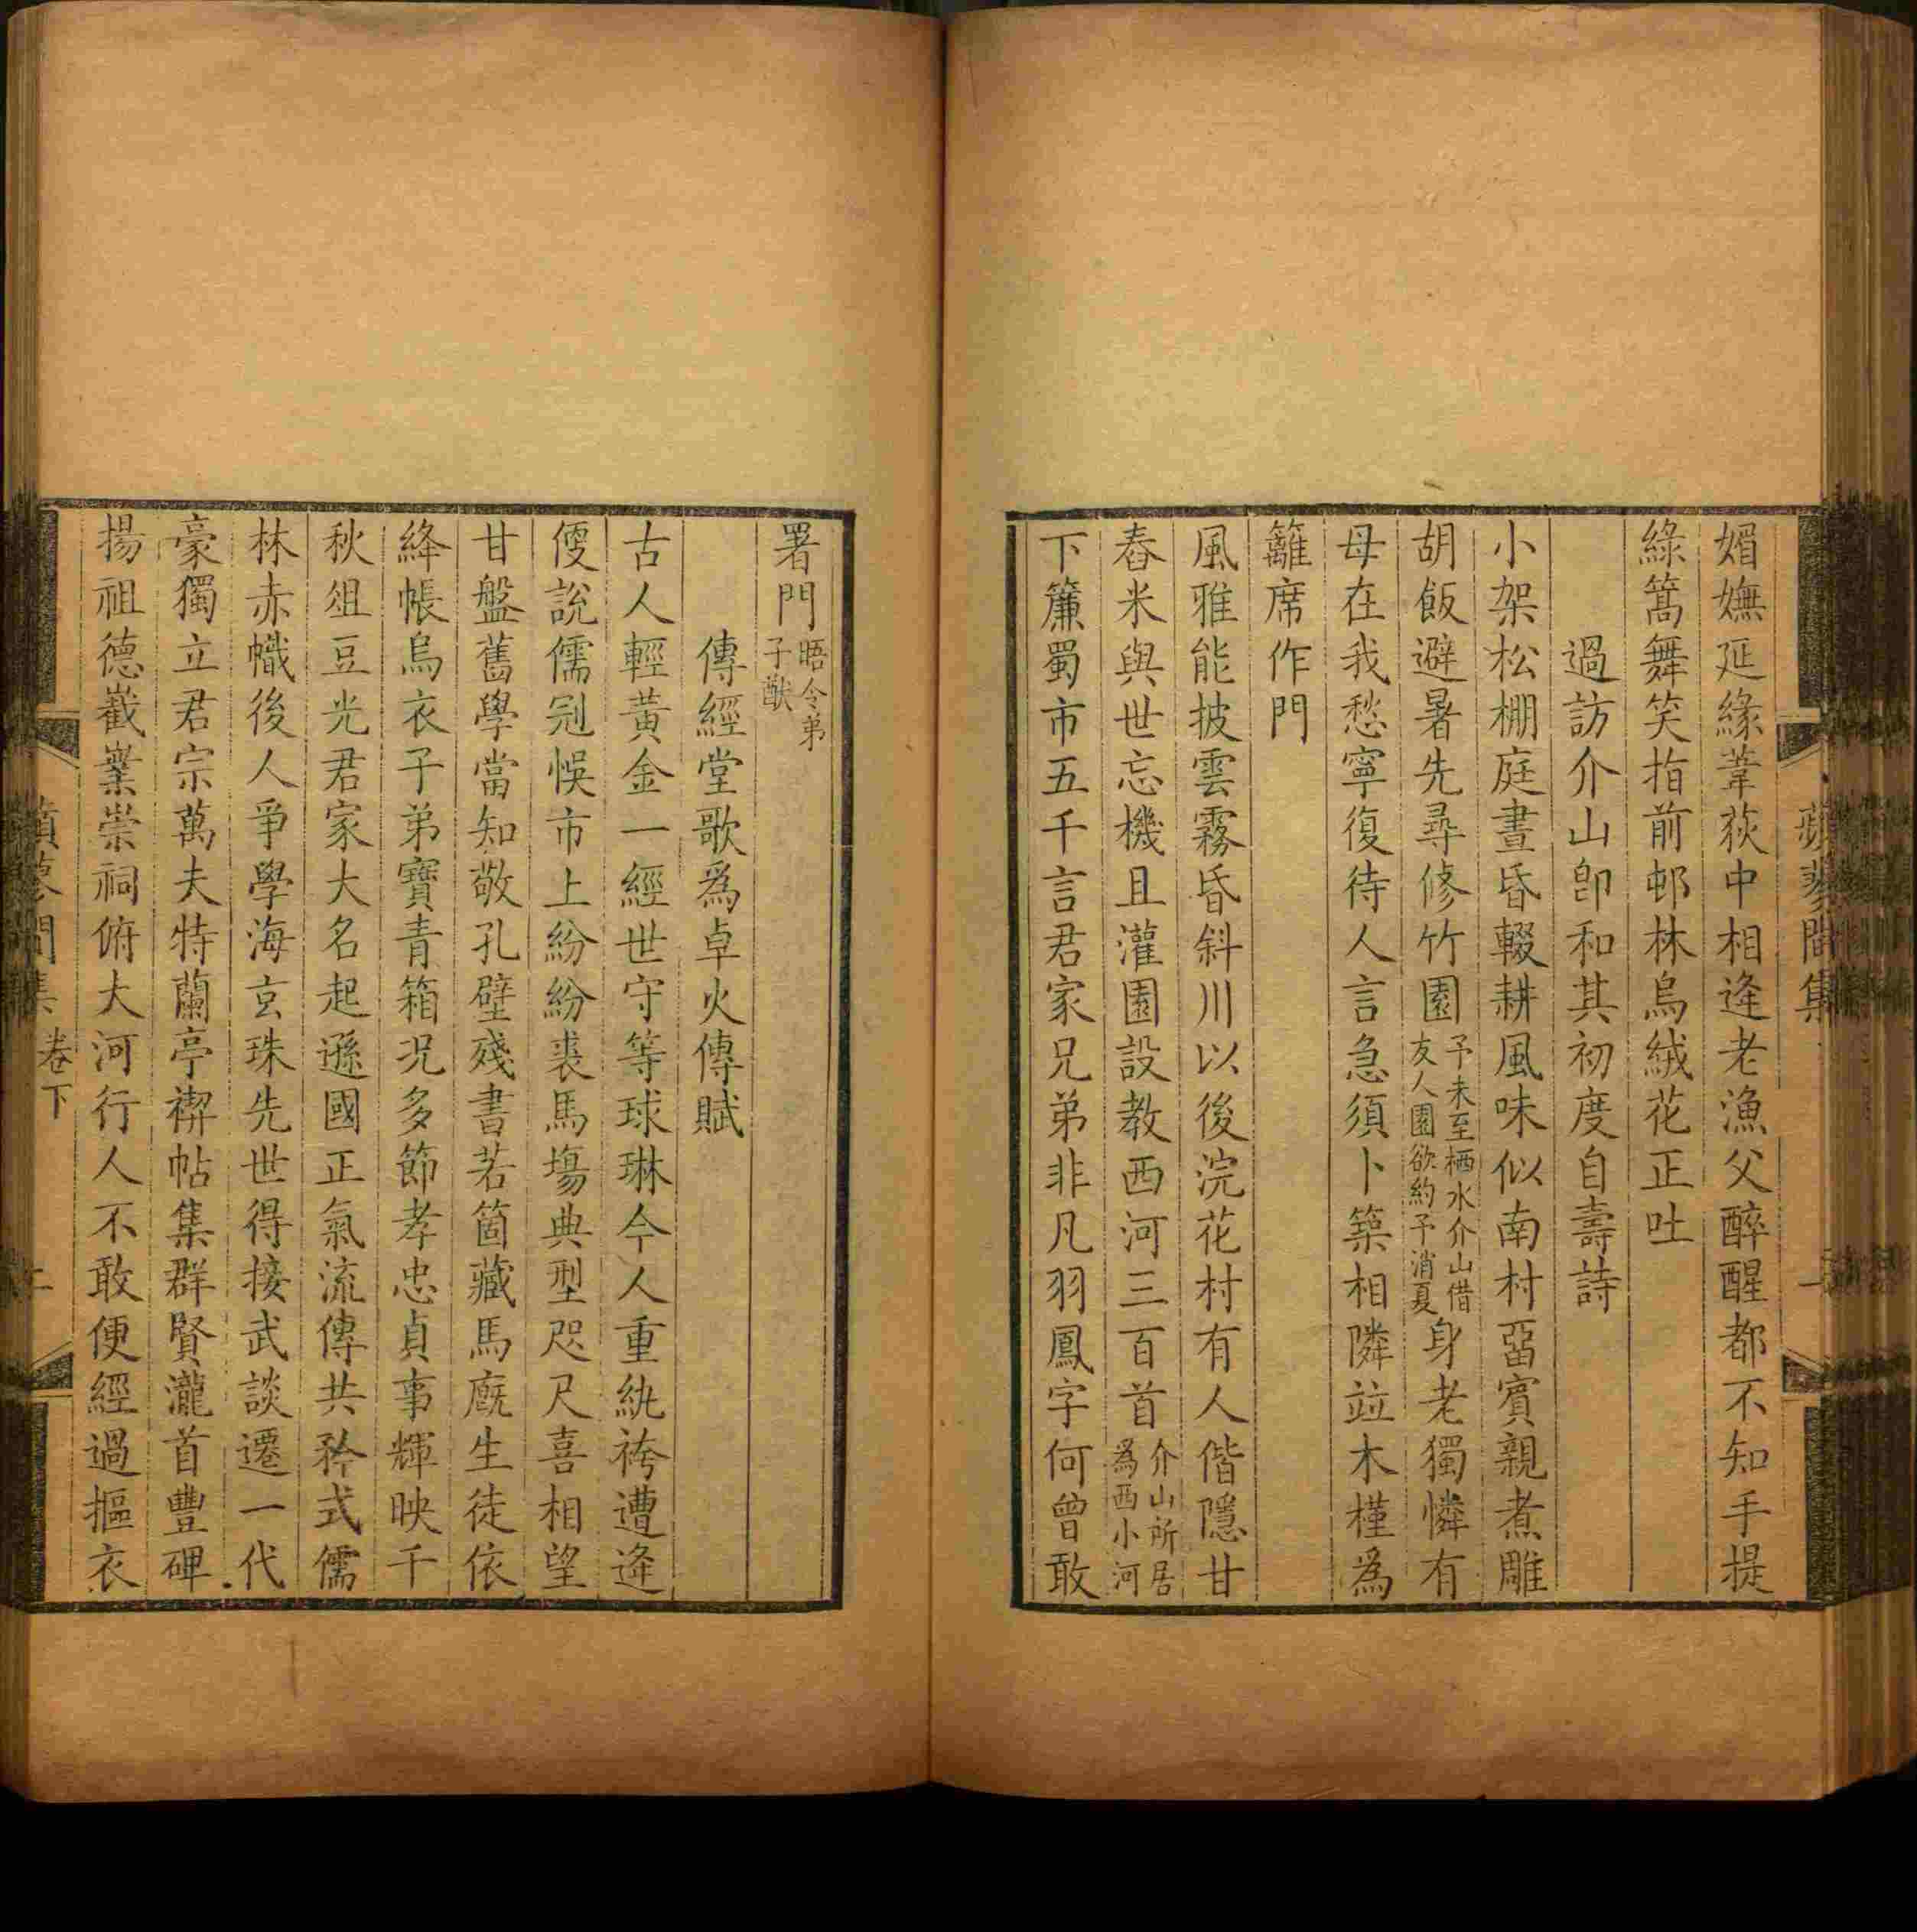 蘋蓼閒集
一
媚嫵延緣葦荻中相逢老漁父醉醒都不知手提
綠篙舞笑指前邨林烏絨花正吐
過訪介山卽和其初度自壽詩
小架松棚庭晝昏輟耕風味似南村畱賓親煮雕
胡飯避暑先尋修竹園予未至栖水介山借友人園欲約予消夏身老獨憐有
母在我愁寧復待人言急須卜築相隣竝木槿為
籬席作門
風雅能披雲霧昏斜川以後浣花村有人偕隱甘
舂米與世忘機且灌園設教西河三百首介山所居為西小河
下簾蜀市五千言君家兄弟非凡羽鳳字何曾敢
署門晤令弟子猷
傳經堂歌爲卓火傳賦
古人輕黃金一經世守等球琳今人重紈袴遭逢
便說儒冠悞市上紛紛裘馬塲典型咫尺喜相望
甘盤舊學當知敬孔壁殘書若箇藏馬廐生徒依
絳帳烏衣子弟寶青箱況多節孝忠貞事輝映千
秋俎豆光君家大名起遜國正氣流傳共矜式儒
林赤幟後人爭學海玄珠先世得接武談遷一代
豪獨立君宗萬夫特蘭亭禊帖集群賢瀧首豐碑
揚祖德巀嶪崇祠俯大河行人不敢便經過摳衣
蘋蓼閒集 卷下
二